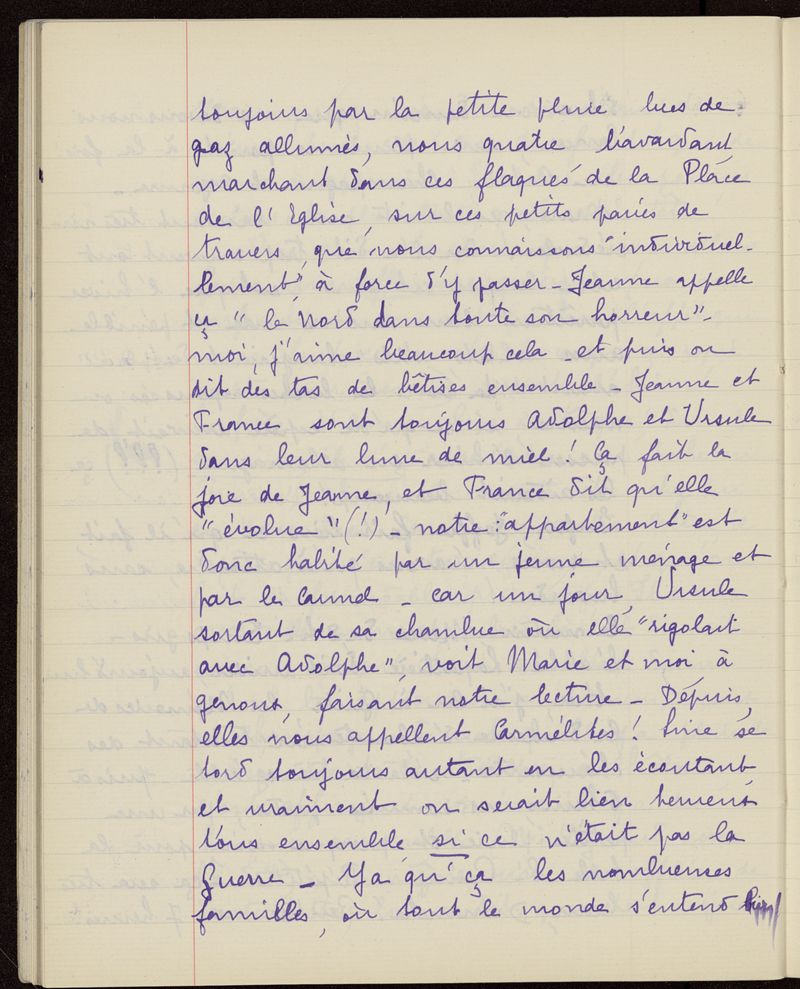 toujours par la petite pluie lues de
gaz allumés, nous quatre bavardant,
marchant dans ces flaques de la Place
de l'Eglise, sur ces petits pavés de
travers, que nous connaissons "individuel-
lement", à force d'y passer - Jeanne appelle
ça "le Nord dans toute son horreur" -
moi, j'aime beaucoup cela - et puis on
dit des tas de bêtises ensemble - Jeanne et
France sont toujours Adolphe et Ursule
dans leur lune de miel ! Ça fait la
joie de Jeanne, et France dit qu'elle
"évolue" (!) - notre "appartement" est
donc habité par un jeune ménage et
par le Carmel - car un jour, Ursule
sortant de sa chambre où elle "rigolait
avec Adolphe", voit Marie et moi, à
genoux, faisant notre lecture - Depuis,
elles nous appellent Carmélites ! Line se
tord toujours autant en les écoutant,
et vraiment on serait bien heureux
tous ensemble, si ce n'était pas la
Guerre - Ya qu'ça les nombreuses
familles, où tout le monde s'entend bien !